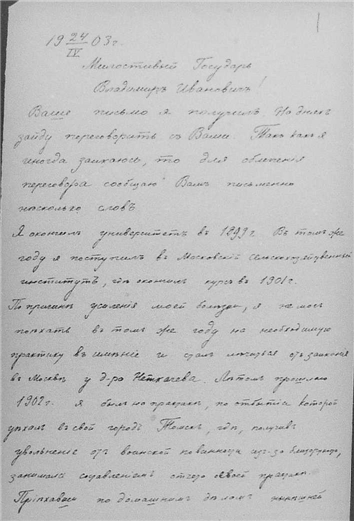 19 24/IV 03 г.
Милостивый Государь
Владимиръ Ивановичъ!
Ваше письмо я получилъ. На дняхъ
зайду переговорить съ Вами. Такъ какъ я
иногда заикаюсь, то для облегченія
переговора сообщаю Вамъ письменно
нѣсколько словъ
Я окончилъ университетъ въ 1899 г. Въ томъ же
году я поступилъ въ Московскій сельскохозяйственный
институтъ, гдѣ окончилъ курсъ въ 1901 г.
По причинѣ усиленія моей болѣзни, я не могъ
поѣхать въ томъ же году на необходимую
практику въ имѣніе и сталъ лѣчиться отъ заиканія
въ Москвѣ у д-ра Неткачева. Лѣтомъ прошлаго
1902 г. я былъ на практикѣ, по отбытіи которой
уѣхалъ въ свой городъ Томскъ, гдѣ, получивъ
увольненіе отъ воинской повинности из-за
занимался составленіемъ отчета своей практики
Пріѣхавъ по домашнимъ дѣламъ нынѣшней